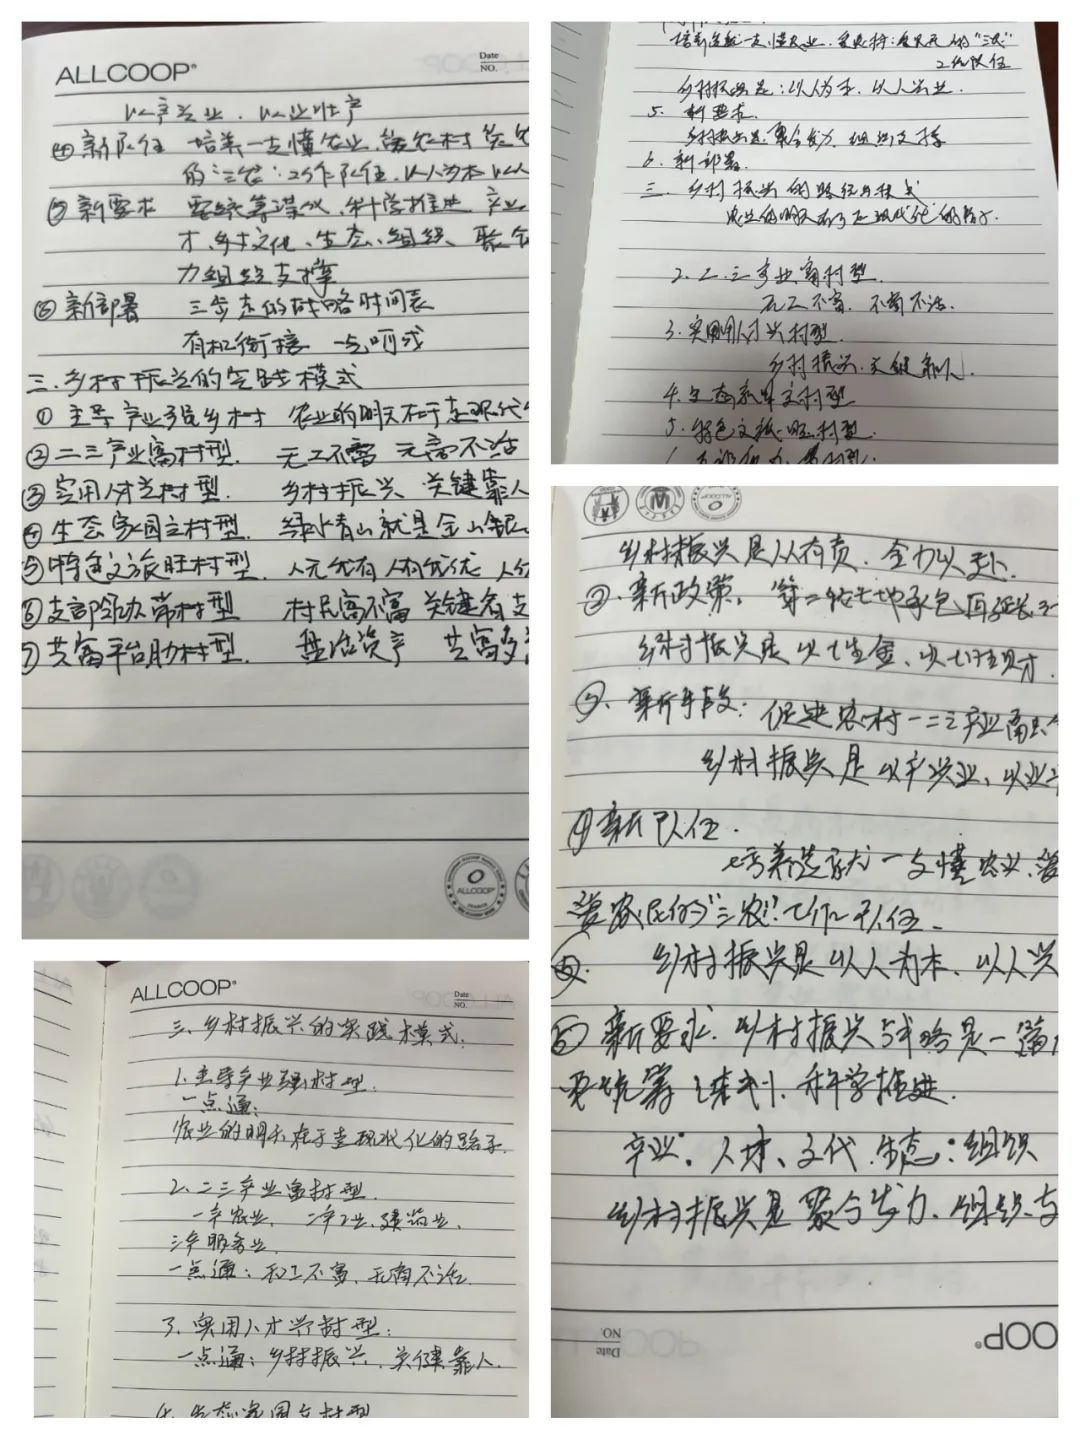 ALLCOOP®
Date
NO.
以产兴业、以业壮产
④新队伍 培养一支懂农业、爱农村 爱农
的三农工作队伍、以人为本 以人
⑤新要求 要统筹谋划、科学推进 产业
才、乡村文化、生态、组织、聚合
力组织支撑
⑥新部署 三步走的战略时间表
有机衔接 一点而成
三、乡村振兴的实践模式
①主导产业强乡村 农业的明天在于走现代
②二三产业富村型. 无工不富 无商不活
③实用人才兴村型. 乡村振兴 关键靠人
④生态家园立村型. 绿水青山就是金山银
⑤特色文旅旺村型. 人无我有 人有我优
⑥支部领办带村型 村民富不富 关键看支
⑦共富平台助村型. 盘活资产 共富多
ALLCOOP
培养造就一支懂农业、爱农村、爱农民的"三农"
工作队伍
乡村振兴是:以人为本、以人兴业.
5. 新要求
乡村振兴是聚合发力 组织支撑
6. 新部署.
三、乡村振兴的路径与模式
农业的明天在于走现代化的路子.
2. 二、三产业富村型.
无工不富、不商不活.
3. 实用人才兴村型.
乡村振兴、关键靠人.
4. 生态家园立村型
5. 特色文旅旺村型.
乡村振兴是人人有责、全力以赴.
②.新政策. 第二轮土地承包再延长三
乡村振兴是以土生金、以土生财.
③.新手段: 促进农村一二三产业融合
乡村振兴是以产兴业、以业
④新队伍.
培养造就一支懂农业、爱
爱农民的"三农"工作队伍.
乡村振兴是以人为本、以人兴
⑤新要求. 乡村振兴战略是一篇
要统筹谋划、科学推进.
产业、人才、文化、生态、组织
乡村振兴是聚合发力、组织支
Date
NO.
OOP®
ALLCOOP®
Date
NO.
三、乡村振兴的实践模式:
1.主导产业强村型.
一点通:
农业的明天在于走现代化的路子.
2.二三产业富村型.
一产农业、二产工业、建筑业、
三产服务业.
一点通:无工不富、无商不活.
3、实用人才兴村型:
一点通:乡村振兴、关键靠人.
4. 生态家园立村型